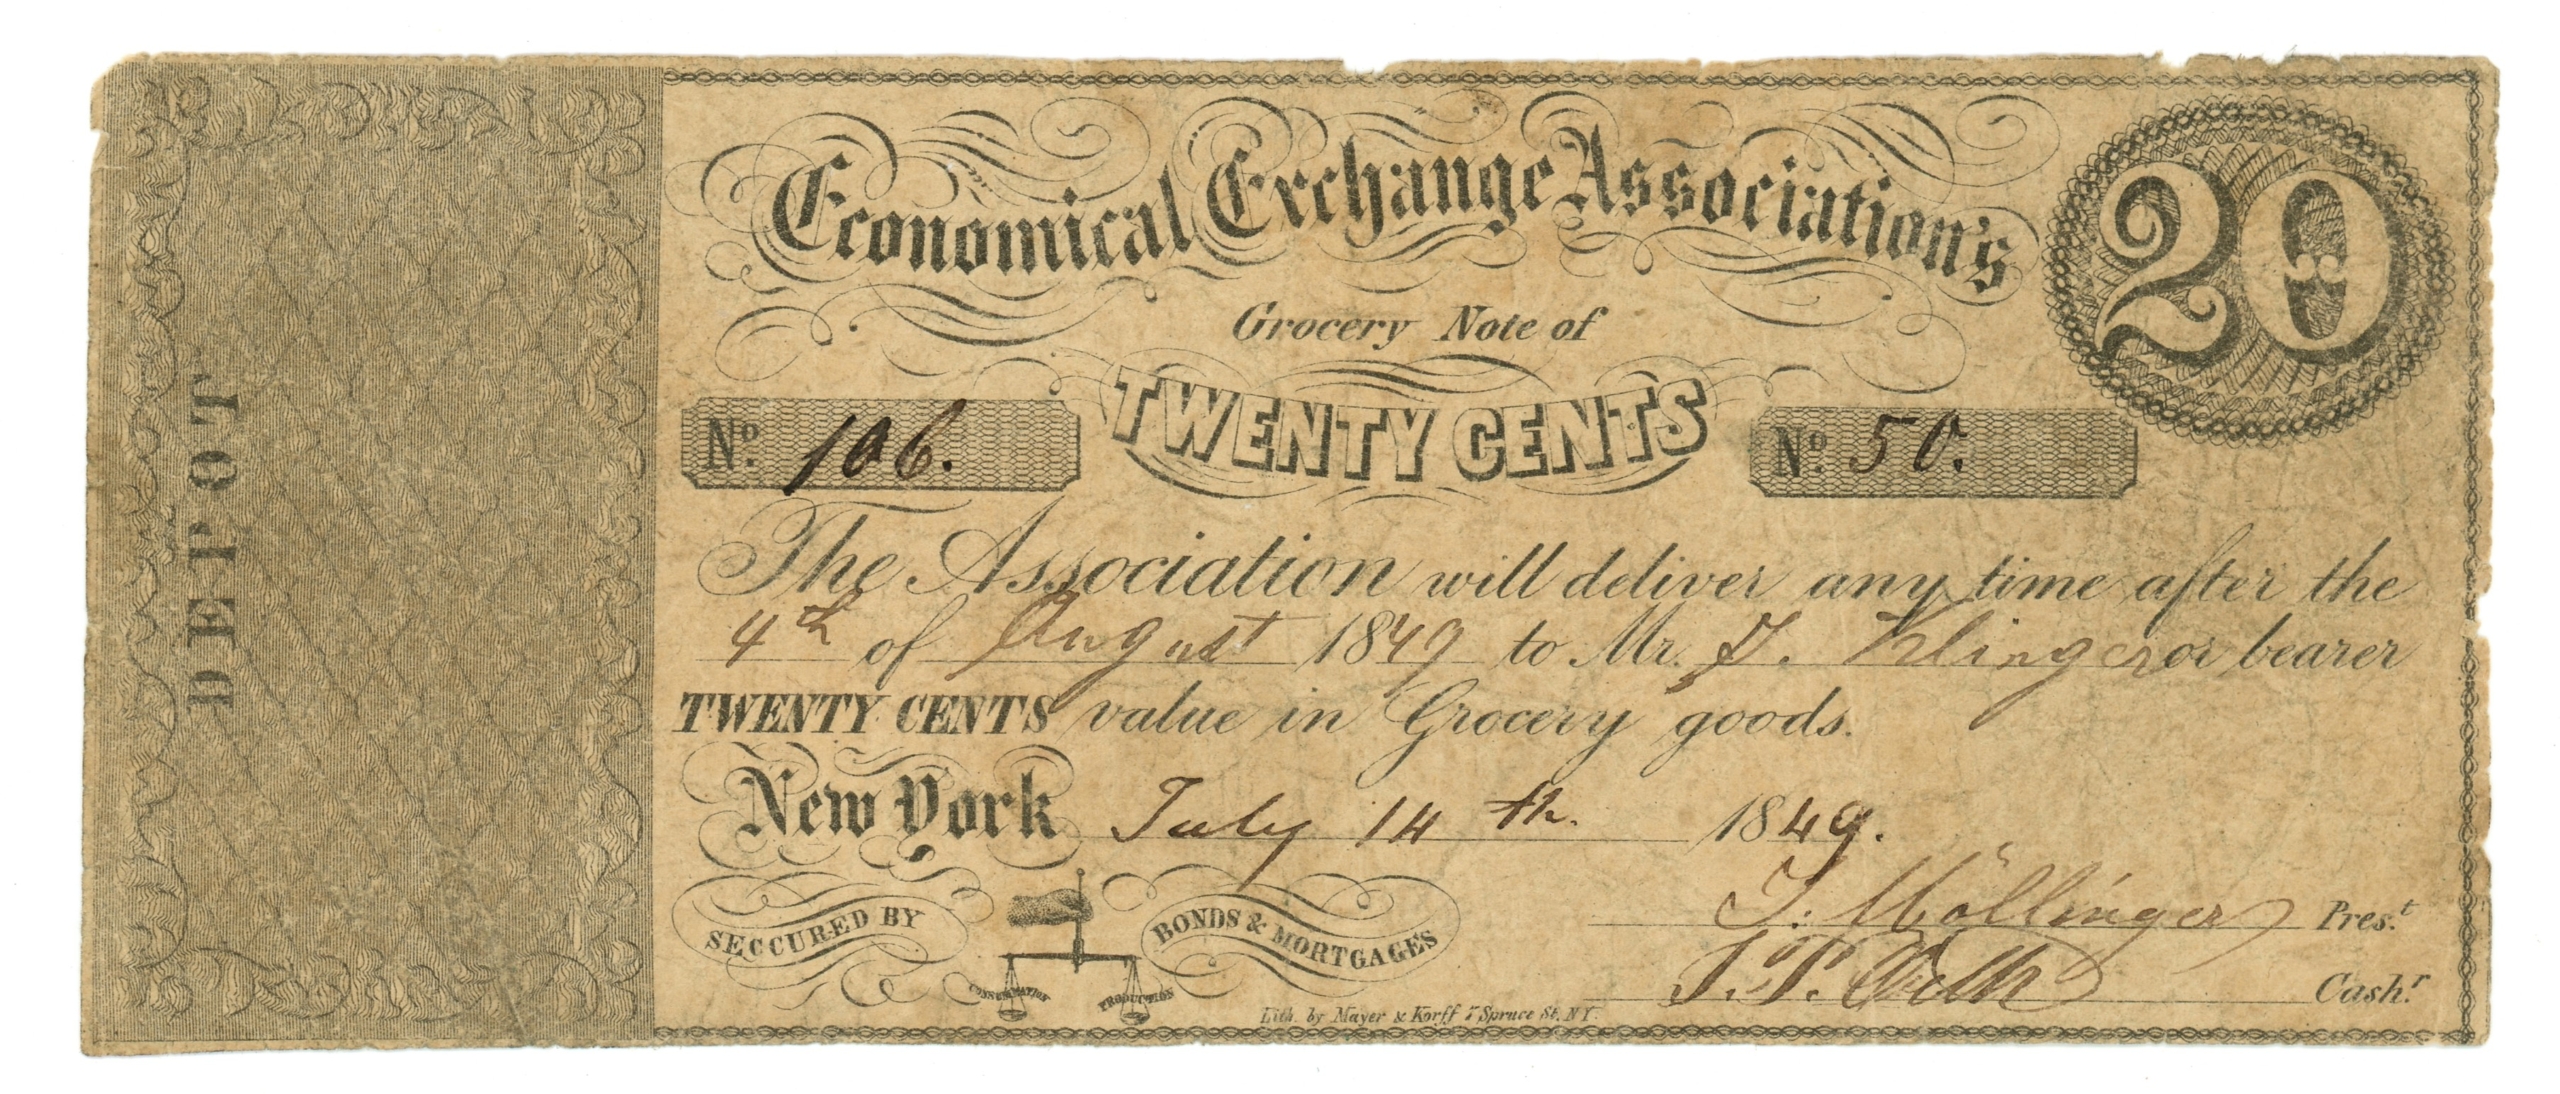 DEPOT
Economical Exchange Association's
20
Grocery Note of
TWENTY CENTS
No. 106.
No. 50.
The Association will deliver any time after the
4th of August 1849 to Mr. F. Klinger or bearer
TWENTY CENTS value in Grocery goods.
New York July 14th. 1849.
SECCURED BY
BONDS & MORTGAGES
CONSUMATION
PRODUCTION
Möllinger Prest
Cashr
Lith. by Mayer & Korff 7 Spruce St. N.Y.